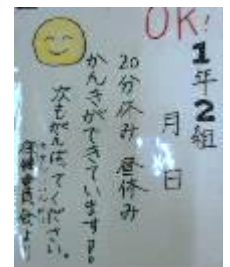 OK!
1年2組
月 日
20分休み 昼休み
かんきができていますね。
次もがんばってください。